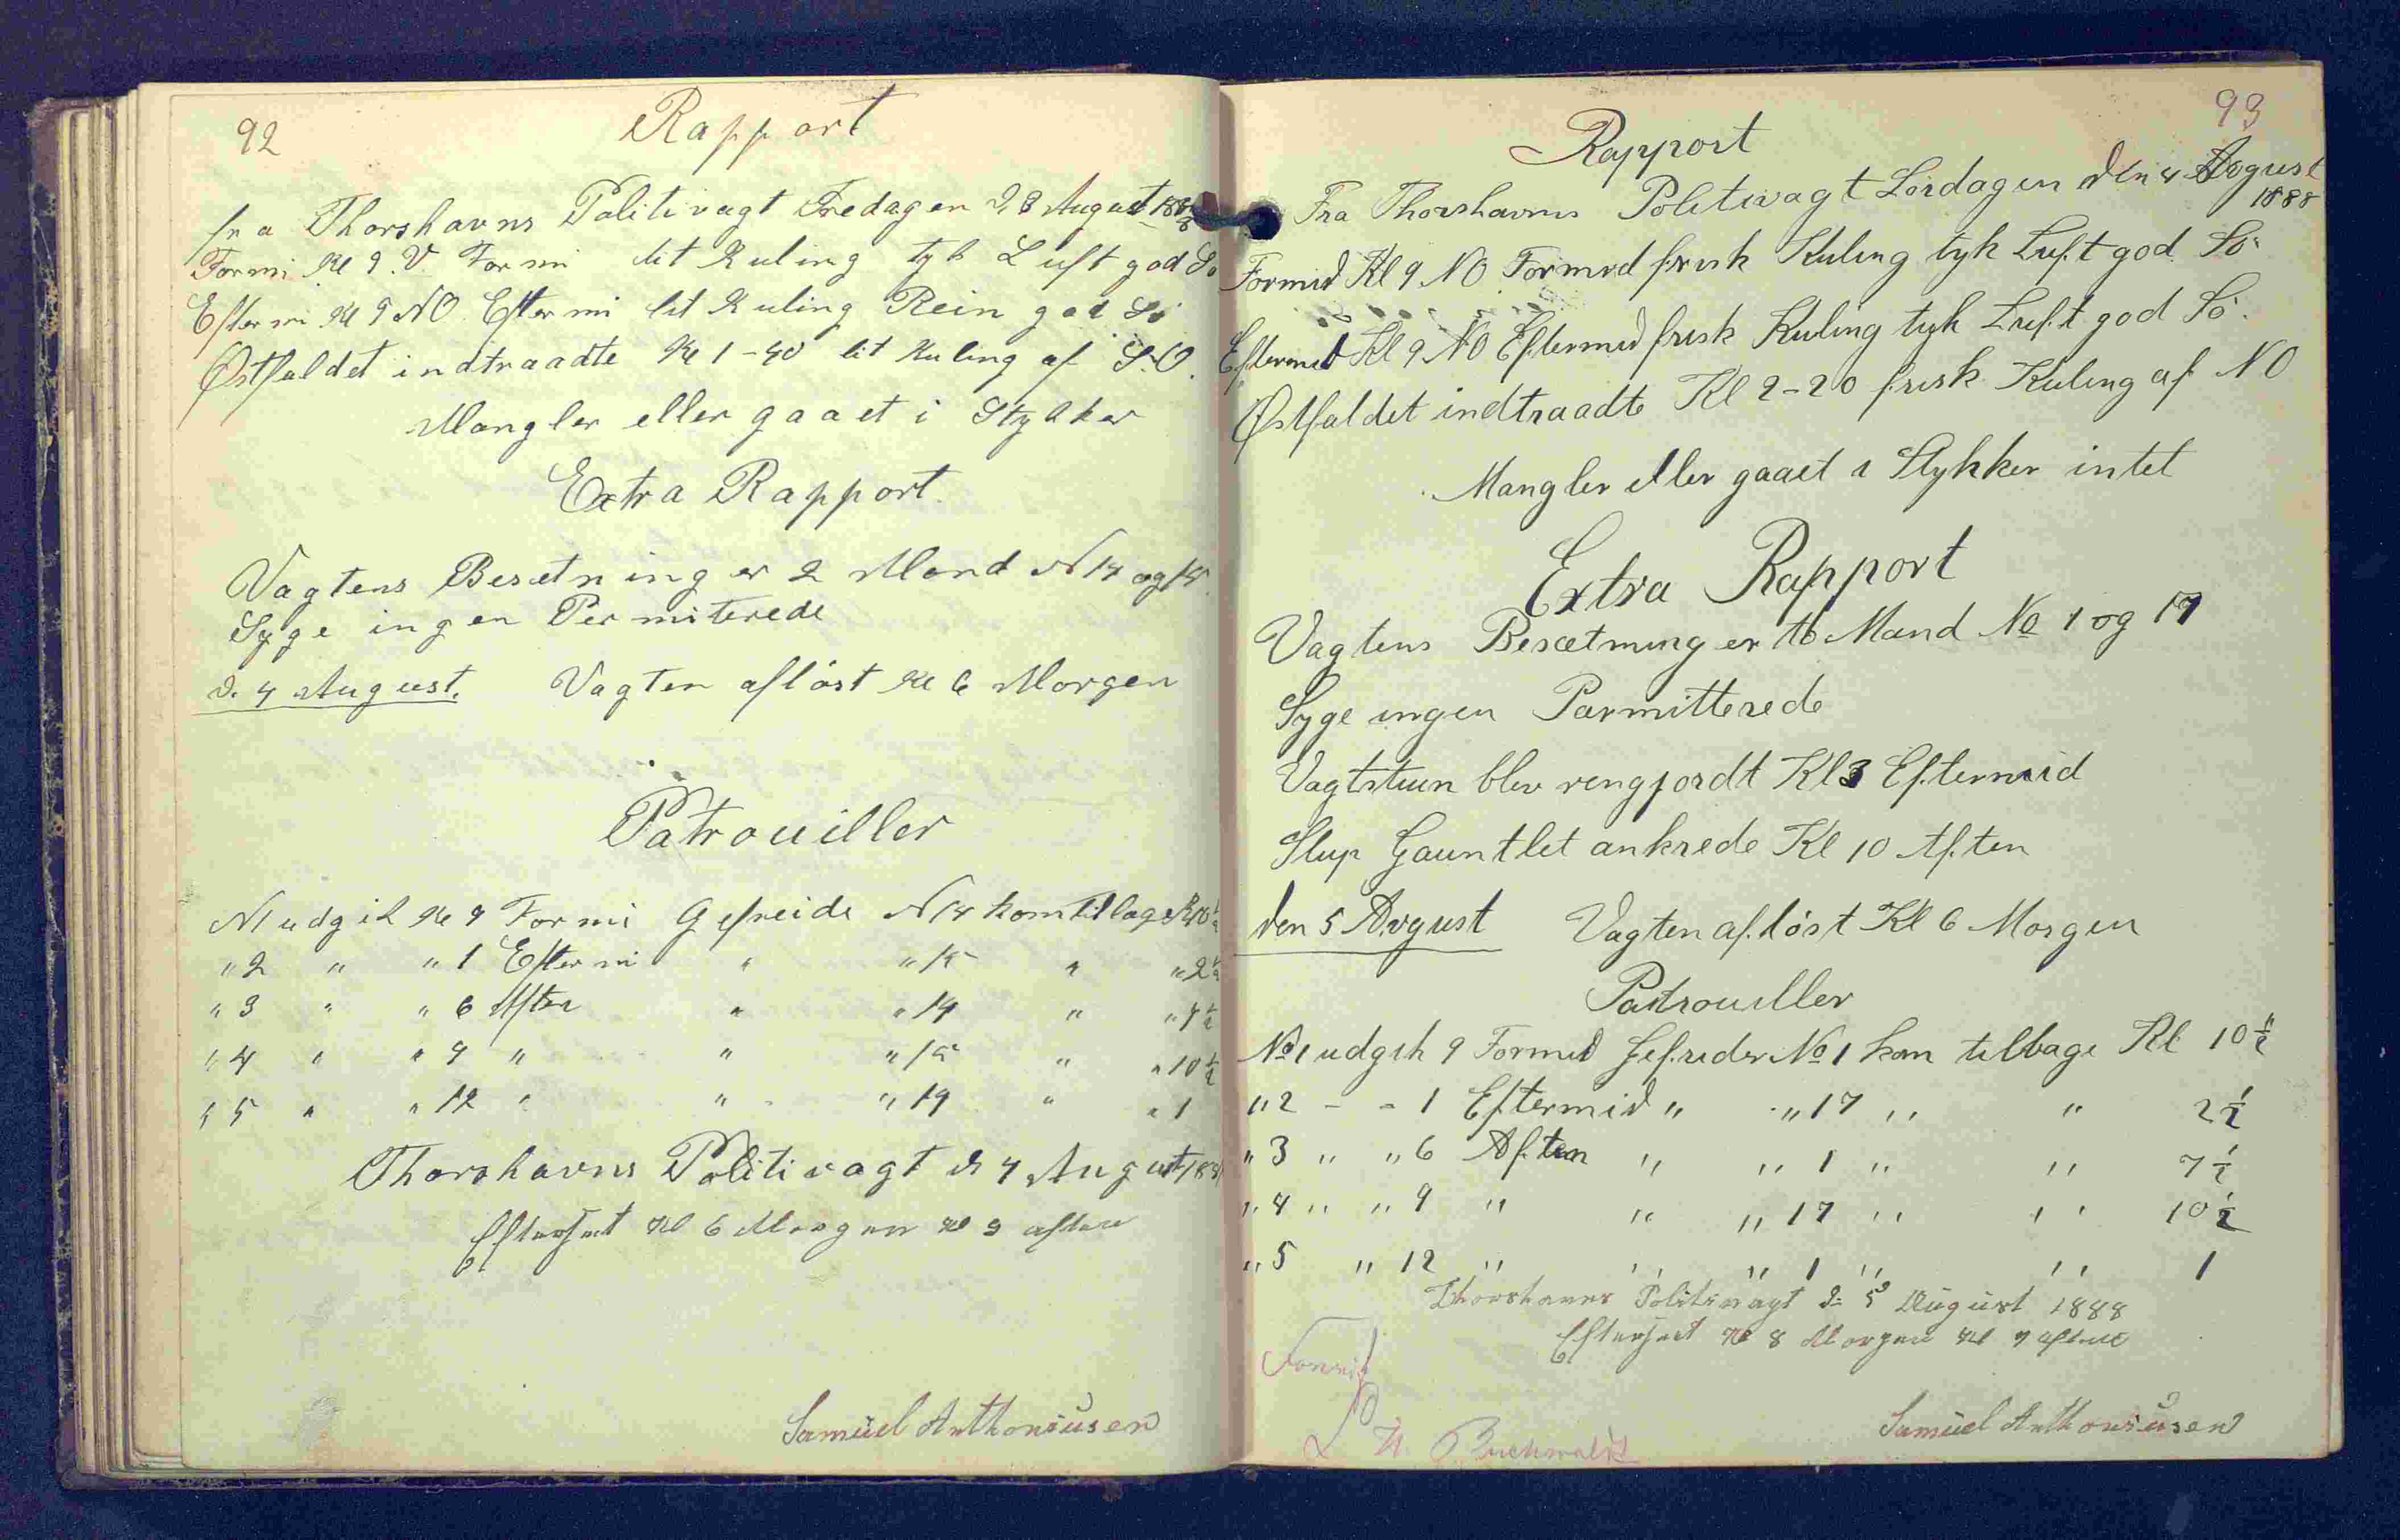 92
Rapport
fra Thorshavns Politivagt Fredagen D, 3 August 1888
Formi Kl 9. V. Formi lit Kuling tyk Luft god Sö
Eftermi Kl 9 NO. Eftermi lit Kuling Rein god Sö
Østfaldet indtraadte Kl 1-40 lit Kuling af S.O.
Mangler eller gaaet i Stykker
Extra Rapport.
Vagtens Besætning er 2 Mand N 14 og 15.
Syge ingen Permiterede
D. 4 August. Vagten aflöst Kl 6 Morgen
Patrouiller
N 1 udgik Kl 9 Formi Gefreide N 14 kom tilbage Kl 10 ½
" 2 " " 1 Eftermi " " 15 " " 2 ½
" 3 " " 6 Aften " " 14 " " 7 ½
" 4 " " 9 " " " 15 " " 10 ½
" 5 " " 12 " " " 14 " " 1
Thorshavns Politivagt D 4 August 188
Efterseet Kl 6 Morgen Kl 9 aften
Samuel Anthoniusen
93
Rapport
Fra Thorshavns Politivagt Lördagen Den 4 August
1888
Formid Kl 9 NO Formid frisk Kuling tyk Luft god Sö
Eftermid Kl 9 NO Eftermid frisk Kuling tyk Luft god Sö.
Østfaldet indtraadte Kl 2-20 frisk Kuling af NO
Mangler eller gaaet i Stykker intet
Extra Rapport
Vagtens Besætning er to Mand No 1 og 17
Syge ingen Parmitterede
Vagtstuen blev rengjordt Kl 3 Eftermid
Slup Gauntlet ankrede Kl 10 Aften
Den 5 August Vagten aflöst Kl 6 Morgen
Patrouiller
No 1 udgik 9 Formid Gefreder No 1 kom tilbage Kl 10 ½
" 2 - - 1 Eftermid " " 17 " " 2 ½
" 3 " " 6 Aften " " 1 " " 7 ½
" 4 " " 9 " " " 17 " " 10 ½
" 5 " 12 " " " 1 " " 1
Thorshavns Politivagt D. 5 August 1888
Efterseet Kl 8 Morgen Kl 9 aften
Samuel Anthoniusen
Buchwaldt